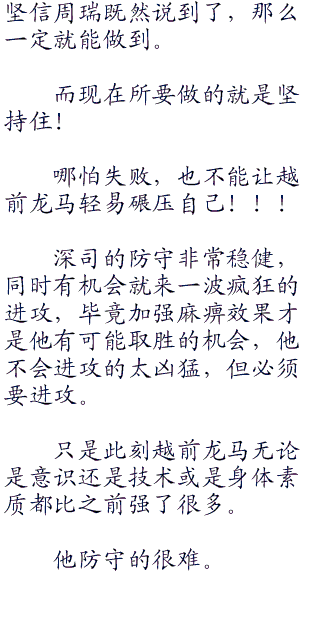 坚信周瑞既然说到了，那么
一定就能做到。
而现在所要做的就是坚
持住！
哪怕失败，也不能让越
前龙马轻易碾压自己！！！
深司的防守非常稳健，
同时有机会就来一波疯狂的
进攻，毕竟加强麻痹效果才
是他有可能取胜的机会，他
不会进攻的太凶猛，但必须
要进攻。
只是此刻越前龙马无论
是意识还是技术或是身体素
质都比之前强了很多。
他防守的很难。